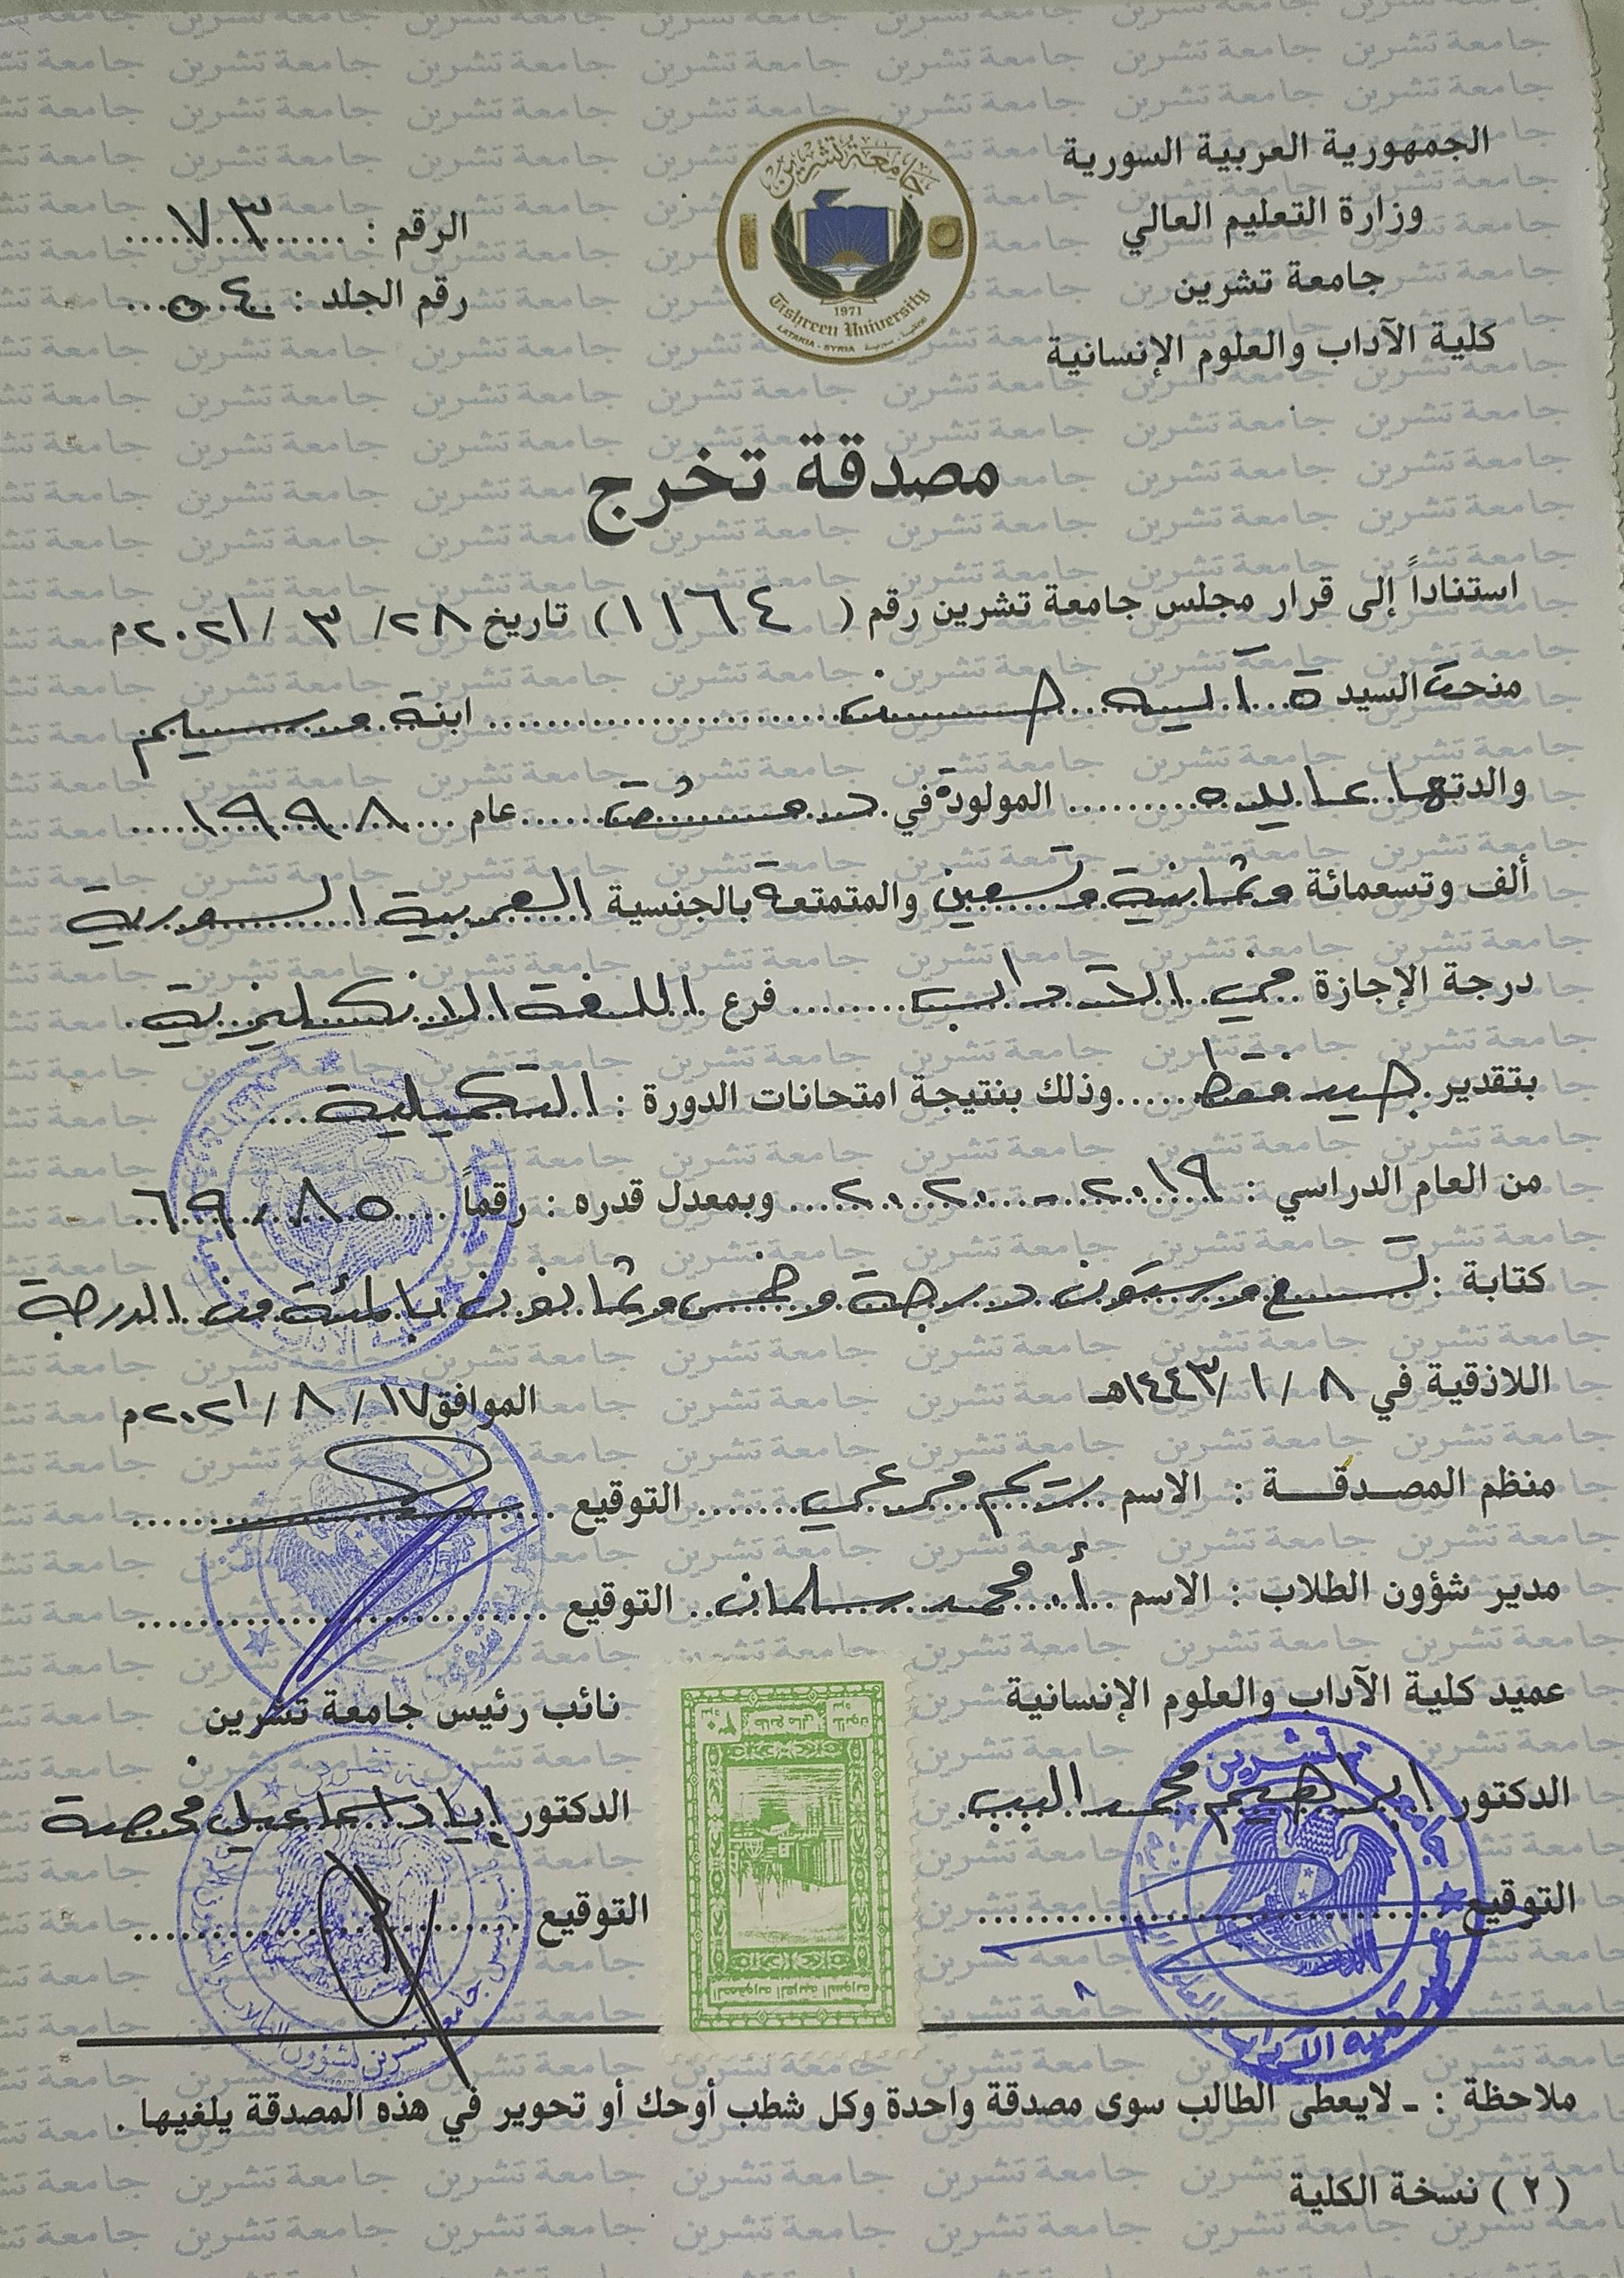 الجمهورية العربية السورية
وزارة التعليم العالي
جامعة تشرين
كلية الآداب والعلوم الإنسانية
جامعة تشرين
1971
Tishreen University
LATAKIA - SYRIA
الرقم : ٧٣
رقم الجلد : ٥٤
مصدقة تخرج
استناداً إلى قرار مجلس جامعة تشرين رقم ( ١١٦٤ ) تاريخ ٢٨ / ٣ / ٢٠٢١م
منحت السيدة آسيه حسن ابنة وسيم
والدتها عايده المولودة في دمشق عام ١٩٩٨
ألف وتسعمائة وثمانية وتسعين والمتمتعة بالجنسية العربية السورية
درجة الإجازة في الآداب فرع اللغة الانكليزية
بتقدير جيد فقط وذلك بنتيجة امتحانات الدورة : التكميلية
من العام الدراسي : ٢٠١٩ - ٢٠٢٠ وبمعدل قدره : رقماً ٦٩,٨٥
كتابة : تسع وستون درجة وخمس وثمانون بالمئة من الدرجة
اللاذقية في ٨ / ١ / ١٤٤٣هـ الموافق ١٧ / ٨ / ٢٠٢١م
منظم المصدقة : الاسم ريم مرعي التوقيع
مدير شؤون الطلاب : الاسم أ. محمد سلمان التوقيع
عميد كلية الآداب والعلوم الإنسانية
نائب رئيس جامعة تشرين
الدكتور ابراهيم محمد البب
الدكتور إياد اسماعيل فحصة
التوقيع
التوقيع
الجمهورية العربية السورية
طابع مالي
ملاحظة : ـ لايعطى الطالب سوى مصدقة واحدة وكل شطب أوحك أو تحوير في هذه المصدقة يلغيها .
( ٢ ) نسخة الكلية